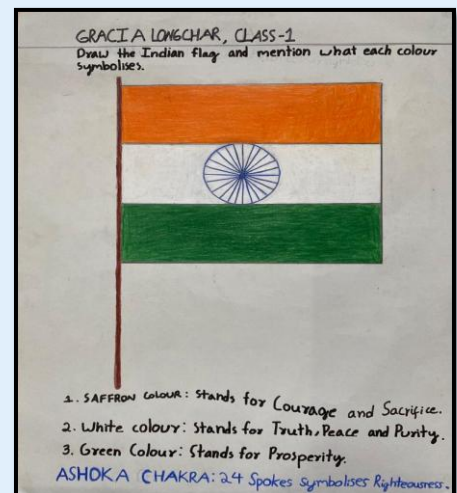 GRACIA LONGCHAR, CLASS-1
Draw the Indian flag and mention what each colour
symbolises.
1. SAFFRON COLOUR: Stands for Courage and Sacrifice.
2. White colour: Stands for Truth, Peace and Purity.
3. Green Colour: Stands for Prosperity.
ASHOKA CHAKRA: 24 Spokes Symbolises Righteousness.